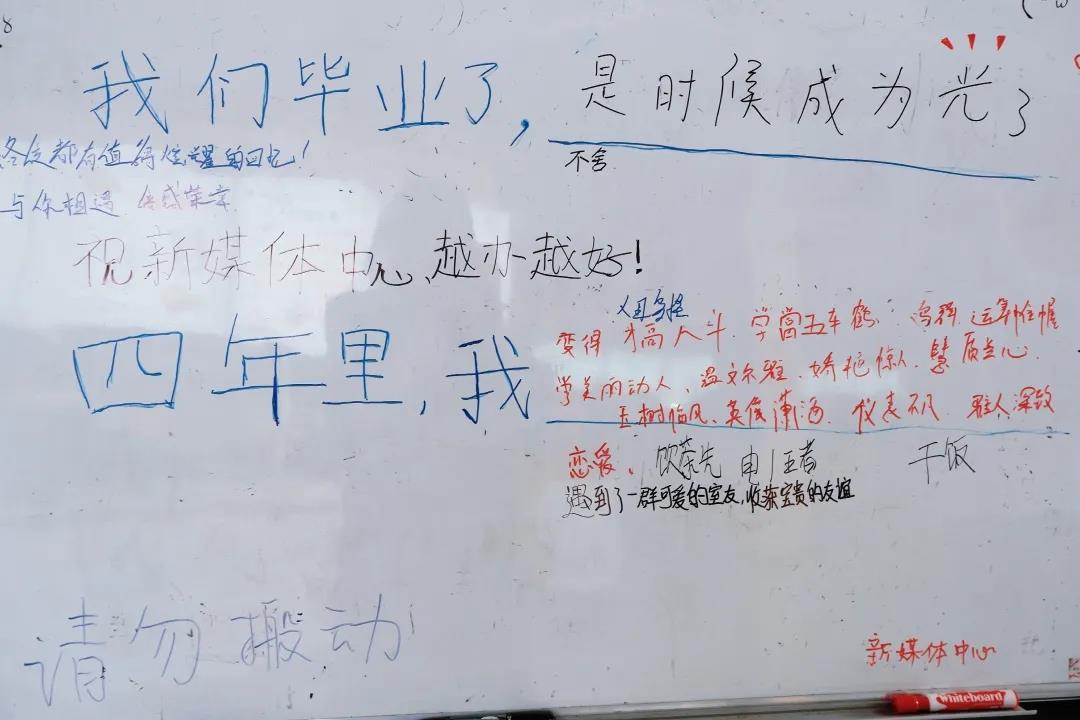 我们毕业了,是时候成为光了
不舍
都有值得 的回忆!
与你相遇 倍感荣幸
祝新媒体中心、越办越好!
四年里,我
变得 才高八斗、学富五车 运筹帷幄
动人、温文尔雅、娇艳惊人、慧质兰心、
玉树临风、英俊潇洒、仪表不凡、
恋爱、饮茶先 王者 干饭
遇到了一群可爱的室友,收获宝贵的友谊
请勿搬动
新媒体中心
Whiteboard